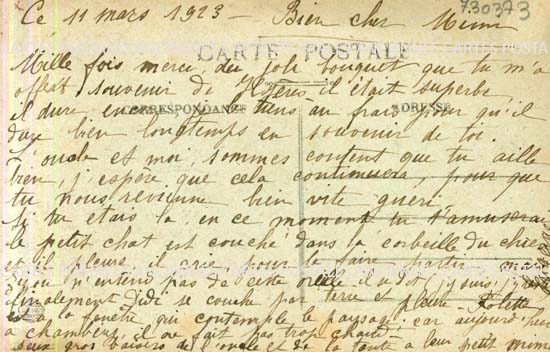 Ce 11 mars 1923 - Bien cher Mimi
730373
CARTE POSTALE
Mille fois merci du joli bouquet que tu m'a
offert souvenir de Hyères il était superbe
CORRESPONDANCE
ADRESSE
il dure encore, je le tiens au frais pour qu'il
dure bien longtemps en souvenir de toi.
L'oncle et moi, sommes content que tu aille
bien, j'espère que cela continuera, pour que
tu nous revienne bien vite guéri.
Si tu étais là en ce moment tu t'amuserai
le petit chat est couché dans la corbeille du chien
et il pleure, il crie pour le faire partir
n'entend pas de cette oreille il
finalement Didi se couche par terre et pleure
la fenêtre qui contemple le paysage, car aujourd'hui
chambery, il ne fait pas trop chaud.
deux gros baisers de l'oncle et de la tante à leur petit mimi